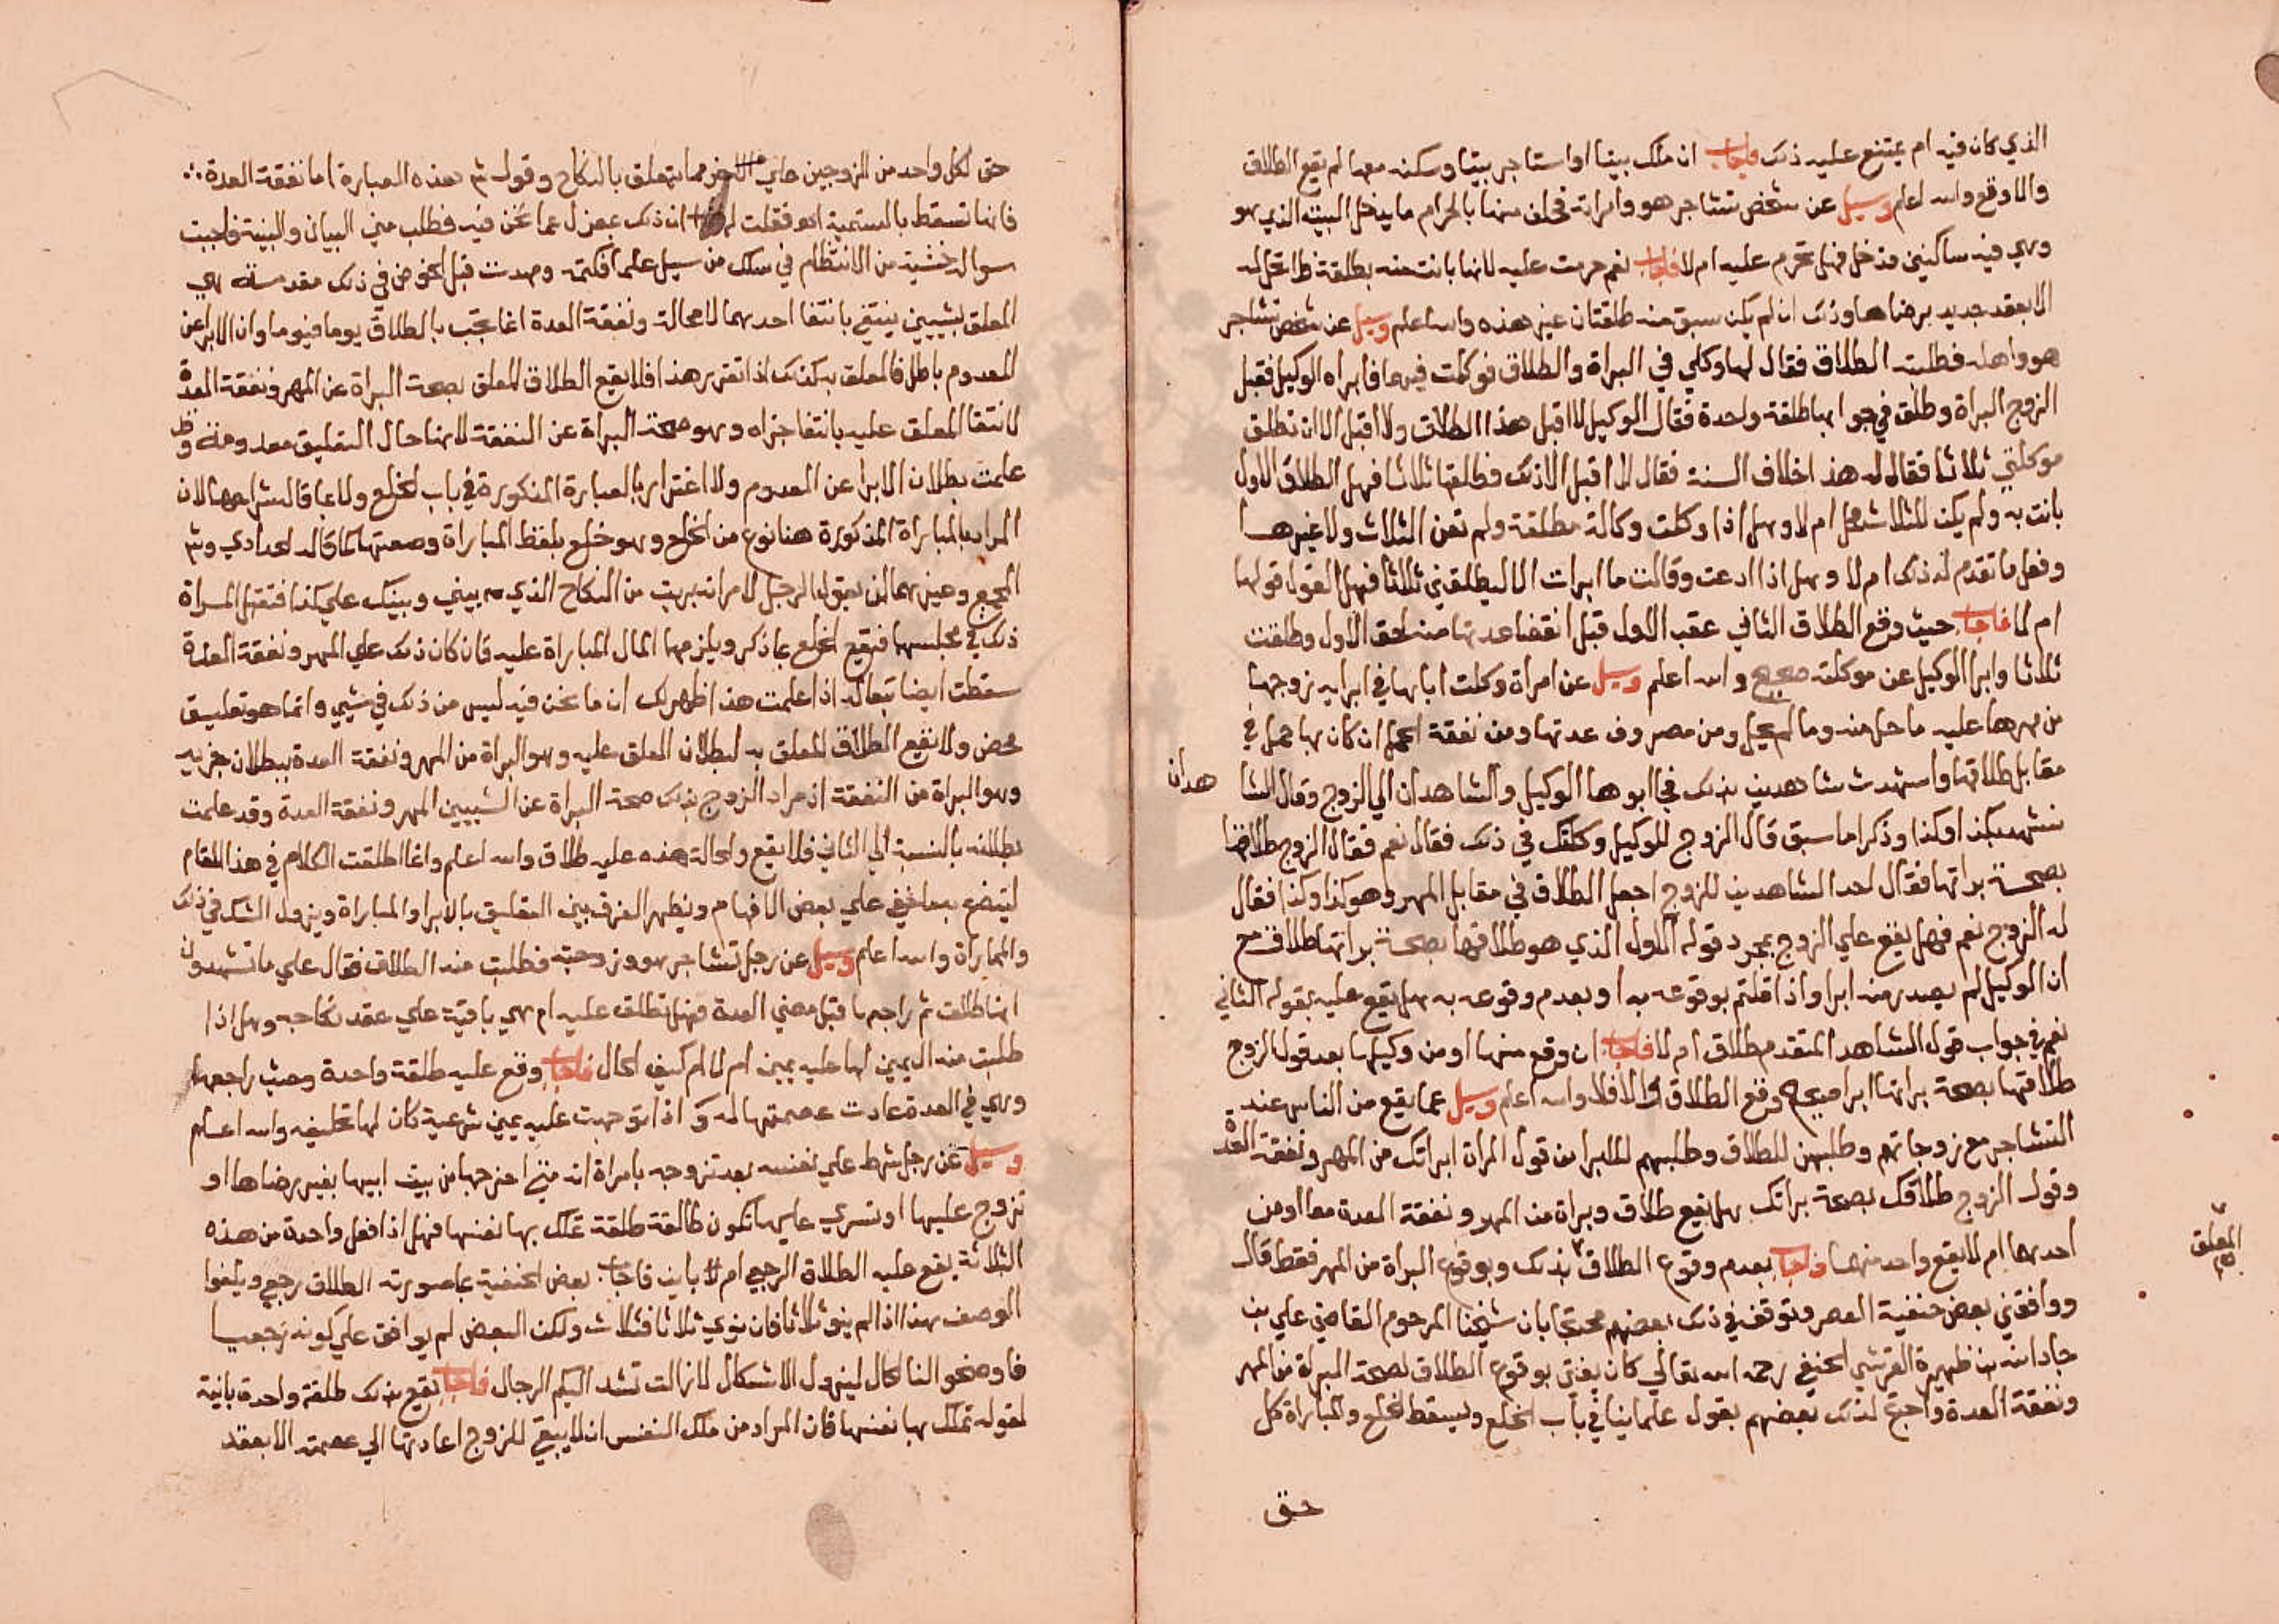 الذي كان فيه ام يمتنع عليه ذلك فاجاب ان ملك بيتا او استاجر بيتا وسكنه معها لم يقع الطلاق
والا وقع والله اعلم وسيل عن شخص تشاجر هو وامراته فحلف منها بالحرام ما يدخل البيت الذي هو
وهي فيه ساكنين فدخل فهل تحرم عليه ام لا فاجاب نعم حرمت عليه لانها بانت منه بطلقة فلا تحل له
الا بعقد جديد برضاها وذلك ان لم يكن سبق منه طلقتان غير هذه والله اعلم وسيل عن شخص تشاجر
هو واهله فطلبت الطلاق فقال لها وكلي في البراة والطلاق فوكلت فيهما فابراه الوكيل فقبل
الزوج البراة وطلق في جوابها طلقة واحدة فقال الوكيل لا اقبل هذا الطلاق ولا اقبل الا ان تطلق
موكلتي ثلاثا فقال له هذا خلاف السنة فقال لا اقبل الا ذلك فطلقها ثلاثا فهل الطلاق الاول
بانت به ولم يكن للثلاث محل ام لا وهل اذا وكلت وكالة مطلقة ولم تعن الثلاث ولا غيرها
وفعل ما تقدم له ذلك ام لا وهل اذا ادعت وقالت ما ابرات الا ليطلقني ثلاثا فهل القول قولها
ام لا فاجاب حيث وقع الطلاق الثاني عقب الاول قبل انقضا عدتها منه لحق الاول وطلقت
ثلاثا وابرا الوكيل عن موكلته صحيح والله اعلم وسيل عن امراة وكلت اباها في ابرايه زوجها
من مهرها عليه ما حل منه وما لم يحل ومن مصروف عدتها ومن نفقة الحمل ان كان بها حمل في
مقابل طلاقها واشهدت شاهدين بذلك فجا ابوها الوكيل والشاهدان الي الزوج وقال الشا هدان
نشهد بكذا وكذا وذكرا ما سبق قال الزوج للوكيل وكلتك في ذلك فقال نعم فقال الزوج طلاقها
بصحة براتها فقال احد الشاهدين للزوج اجعل الطلاق في مقابل المهر وهو كذا وكذا فقال
له الزوج نعم فهل يقع علي الزوج بمجرد قوله الاول الذي هو طلاقها بصحة براتها طلاق مع
ان الوكيل لم يصدر منه ابرا واذا قلتم بوقوعه به او بعدم وقوعه به هل يقع عليه بقوله الثاني
نعم في جواب قول الشاهد المتقدم طلاق ام لا فاجاب ان وقع منها او من وكيلها بعد قول الزوج
طلاقها بصحة براتها ابرا صحيح وقع الطلاق والا فلا والله اعلم وسيل عما يقع من الناس عند
التشاجر مع زوجاتهم وطلبهن للطلاق وطلبهم للابرا من قول المراة ابراتك من المهر ونفقة العدة
وقول الزوج طلاقك بصحة براتك هل يقع طلاق وبراة من المهر ونفقة العدة معا او من
احدهما ام لا يقع واحد منهما فاجاب بعدم وقوع الطلاق بذلك وبوقوع البراة من المهر فقط قال
المعلق
ووافقني بعض حنفية العصر وتوقف في ذلك بعضهم محتجا بان شيخنا المرحوم القاضي علي بن
جار الله بن ظهيرة القرشي الحنفي رحمه الله تعالي كان يفتي بوقوع الطلاق لصحة البراة من المهر
ونفقة العدة واحتج لذلك بعضهم بقول علماينا في باب الخلع ويسقط الخلع والمباراة كل
حق
حق لكل واحد من الزوجين علي الاخر مما يتعلق بالنكاح وقوله هذه العبارة اما نفقة العدة
فانها تسقط بالتسمية اهـ فقلت له ان ذلك بمعزل عما نحن فيه فطلب مني البيان والبينة فاجبت
سواله خشية من الانتظام في سلك من سيل علما فكتمه ومهدت قبل الخوض في ذلك مقدمة هي
المعلق بشيين ينتفي بانتفا احدهما لا محالة ونفقة العدة انما تجب بالطلاق يوما فيوما وان الابرا عن
المعدوم باطل فالمعلق به كذلك اذا تقرر هذا فلا يقع الطلاق المعلق بصحة البراة عن المهر ونفقة العدة
لانتفا المعلق عليه بانتفا جزاه وهو صحة البراة عن النفقة لانها حال التعليق معدومة وقد
علمت بطلان الابرا عن المعدوم ولا اغترار بالعبارة المذكورة في باب الخلع ولا بما قاله شراحها لان
المراد بالمباراة المذكورة هنا نوع من الخلع وهو خلع بلفظ المباراة وصفتها كما قاله الحدادي وش
المجمع وغيرهما ان يقول الرجل لامراته بريت من النكاح الذي بيني وبينك علي كذا فتقبل المراة
ذلك في مجلسها فيقع الخلع بما ذكر ويلزمها المال المباراة عليه فان كان ذلك علي المهر ونفقة العدة
سقطت ايضا تبعا له اذا علمت هذا ظهر لك ان ما نحن فيه ليس من ذلك في شيي وانما هو تعليق
محض ولا يقع الطلاق المعلق به لبطلان المعلق عليه وهو البراة من المهر ونفقة العدة ببطلان جزيه
وهو البراة من النفقة اذ مراد الزوج بذلك صحة البراة عن الشيين المهر ونفقة العدة وقد علمت
بطلانه بالنسبة الي الثاني فلا يقع والحالة هذه عليه طلاق والله اعلم وانما اطلقت الكلام في هذا المقام
ليتضح بما خفي علي بعض الافهام ويظهر الفرق بين التعليق بالابرا والمباراة ويزول الشك في ذلك
والمماراة والله اعلم وسيل عن رجل تشاجر هو وزوجته فطلبت منه الطلاق فقال علي ما تشهدوا
انها طالقة ثم راجعها قبل مضي العدة فهل تطلق عليه ام هي باقية علي عقد نكاحه وهل اذا
طلبت منه اليمين لها عليه يمين ام لا ام كيف الحال فاجاب وقع عليه طلقة واحدة وحيث راجعها
وهي في العدة عادت عصمتها له واذا توجهت عليه يمين شرعية كان لها تحليفه والله اعلم
وسيل عن رجل شرط علي نفسه بعد تزوجه بامراة انه متي اخرجها من بيت ابيها بغير رضاها او
تزوج عليها او تسري عليها تكون طالقة طلقة تملك بها نفسها فهل اذا فعل واحدة من هذه
الثلاثة يقع عليه الطلاق الرجعي ام لا باين فاجاب بعض الحنفية بما صورته الطلاق رجعي ويلغوا
الوصف بهذا اذا لم ينو ثلاثا فان نوي ثلاثا فثلاث ولكن البعض لم يوافق علي كونه رجعيا
فاوضحوا لنا الحال ليزول الاشكال لا زالت تشد اليكم الرحال فاجاب يقع بذلك طلقة واحدة باينة
لقوله تملك بها نفسها فان المراد من ملك النفس ان لا يبقي للزوج اعادتها الي عصمته الا بعقد